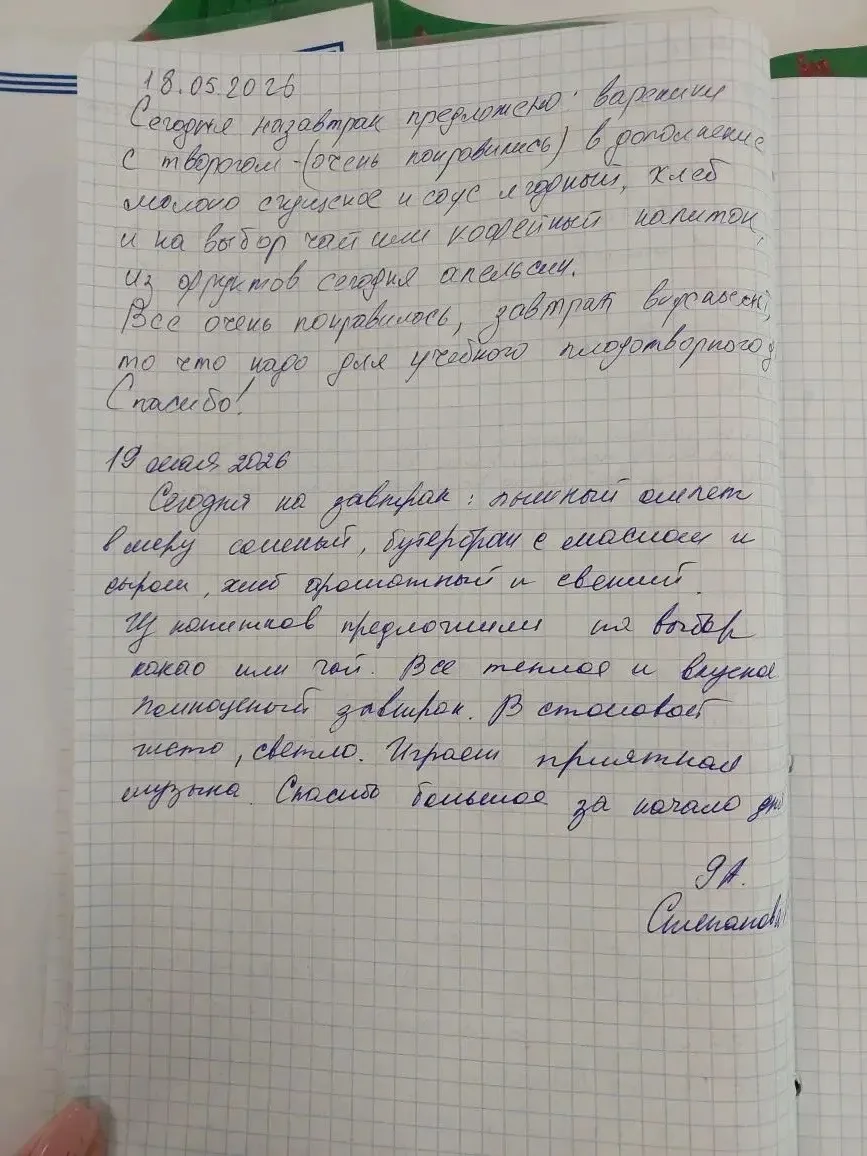 18.05.2026
Сегодня назавтрак предложено: вареники
с творогом - (очень понравились) в дополнение
молоко сгущеное и соус ягодный, хлеб
и на выбор чай или кофейный напиток,
из фруктов сегодня апельсин.
Все очень понравилось, завтрак
то что надо для учебного плодотворного д
Спасибо!
19 мая 2026
Сегодня на завтрак: пышный омлет
в меру соленый, бутерброд с маслом и
сыром, хлеб ароматный и свежий.
Из напитков предложили на выбор
какао или чай. Все теплое и вкусное
полноценый завтрак. В столовой
чисто, светло. Играет приятная
музыка. Спасибо большое за начало дня
ЯА.
Степанова